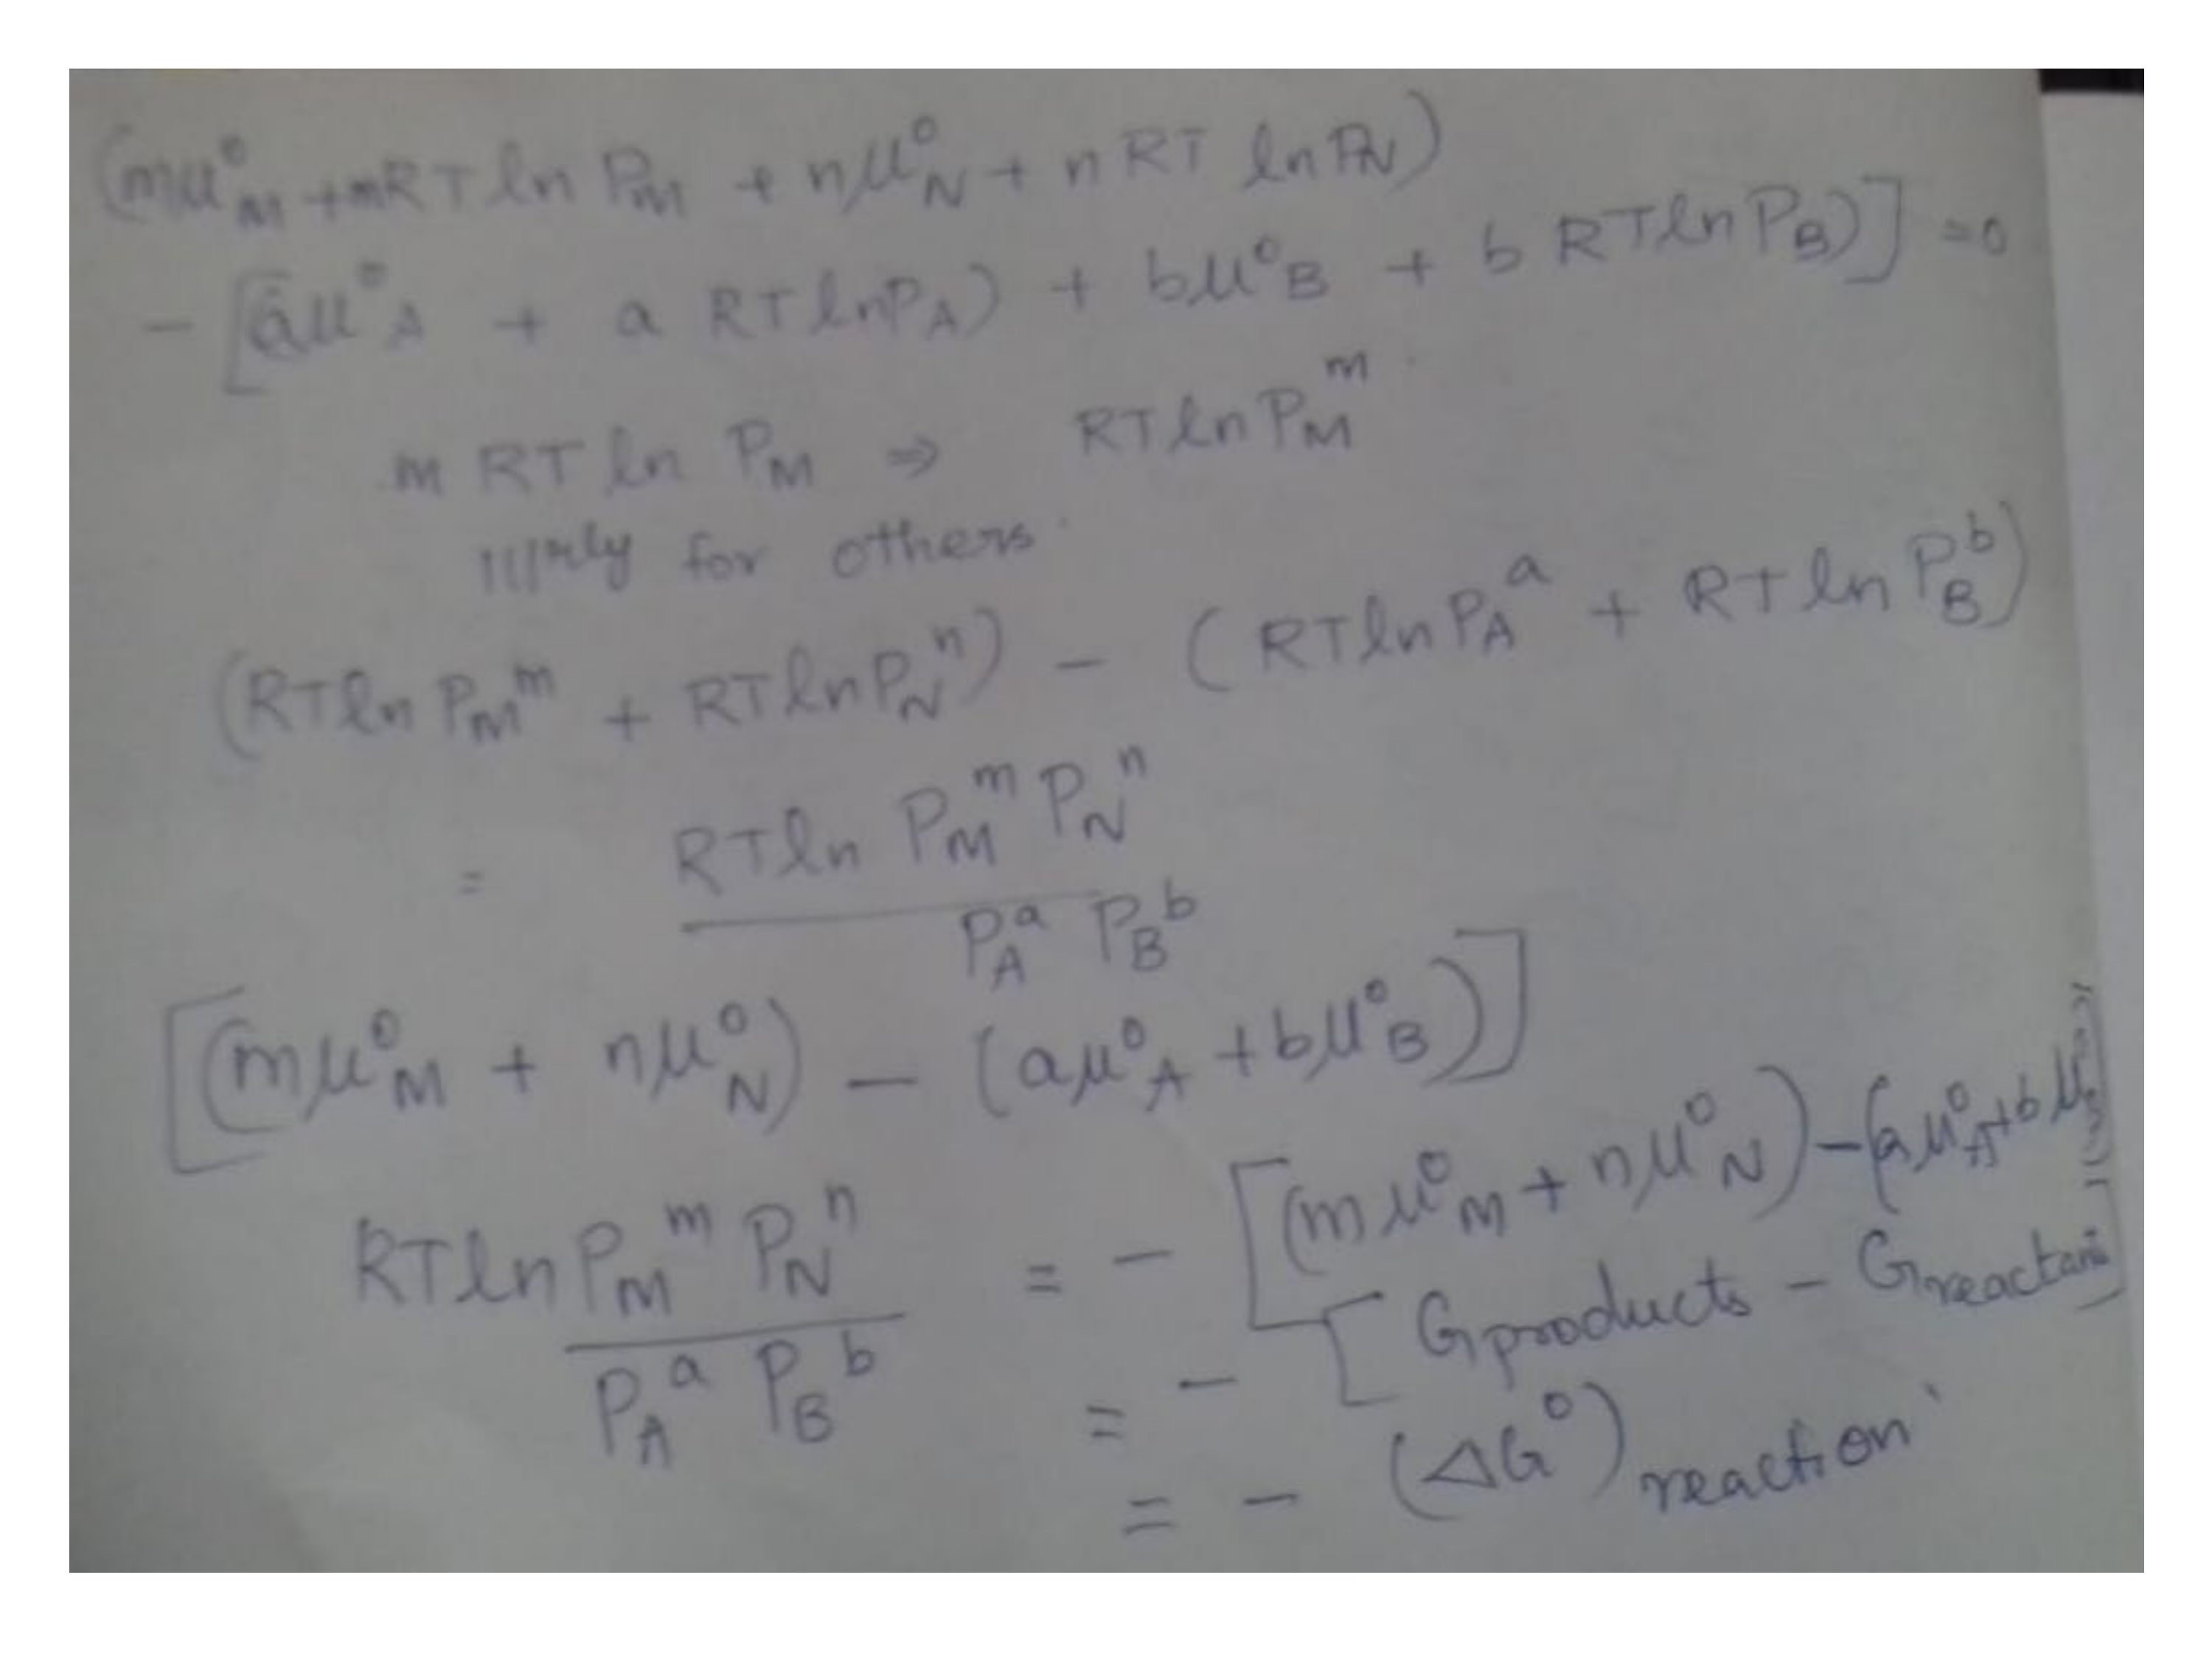 (mμ°M + mRT ln PM + nμ°N + nRT ln PN)
- [(aμ°A + a RT ln PA) + bμ°B + b RT ln PB)] = 0
m RT ln PM ⇒ RT ln PM^m
111rly for others.
(RT ln PM^m + RT ln PN^n) - (RT ln PA^a + RT ln PB^b)
= RT ln PM^m PN^n
PA^a PB^b
[(mμ°M + nμ°N) - (aμ°A + bμ°B)]
RT ln PM^m PN^n = - [(mμ°M + nμ°N) - (aμ°A + bμ°B)]
PA^a PB^b
= - [Gproducts - Greactants]
= - (ΔG°)reaction